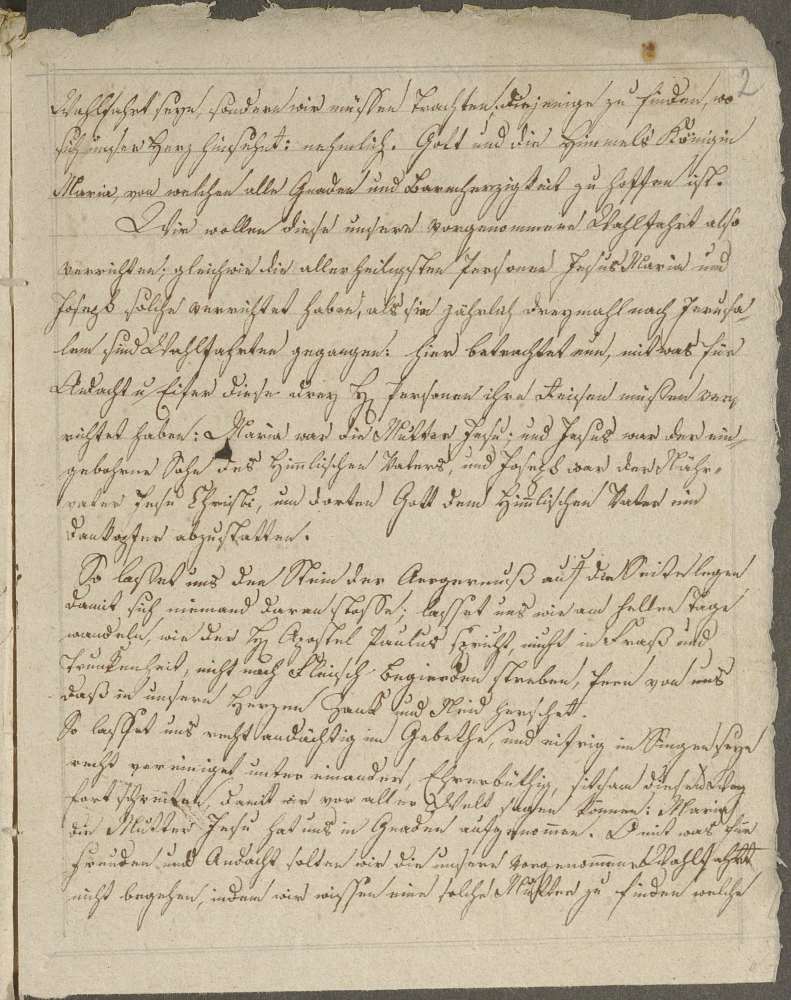 2
Wahlfahrt seye, sondern wir müssen trachten, diejenige zu finden, wo
sich unser Herz hinsehnt: nehmlich. Gott und die Himmels Königin
Maria von welchen alle Gnaden und Barmherzigkeit zu hoffen ist.
Wir wollen diese unsere vorgenommene Wahlfahrt also
verrichten; gleichwie die allerheiligsten Personen Jesus Maria und
Joseph solche verrichtet haben, als sie jährlich dreymahl nach Jerusa-
lem sind Wahlfahrten gegangen: hier betrachtet nun, mit was für
Andacht u Eifer diese drey H Personen ihre Reisen müssen ver-
richtet haben: Maria war die Mutter Jesu; und Jesus war der ein-
gebohrne Sohn des Himlischen Vaters, und Joseph war der Nähr-
vater Jesu Christi, um dorten Gott dem Himlischen Vater ein
Dankopfer abzustatten.
So lasset uns den Stein der Aergernuß auf die Seite legen
damit sich niemand daran stosse; lasset uns wie am hellen Tage
wandeln, wie der H Apostel Paulus spricht, nicht in Fraß und
Trunkenheit, nicht nach Fleisch Begierden streben, fern von uns
daß in unsern Herzen Zank und Neid herschet.
So lasset uns recht andächtig im Gebethe, und eifrig im Singen seye
recht vereiniget unter einander, Ehrerbüthig, sitsam diesen Weg
fort schreiten, damit wir vor aller Welt sagen können: Maria
die Mutter Jesu hat uns in Gnaden aufgenommen. O mit was für
Freuden und Andacht solten wir die unsere vorgenommene Wahlfahrt
nicht begehen, indem wir wissen eine solche Mutter zu finden welche